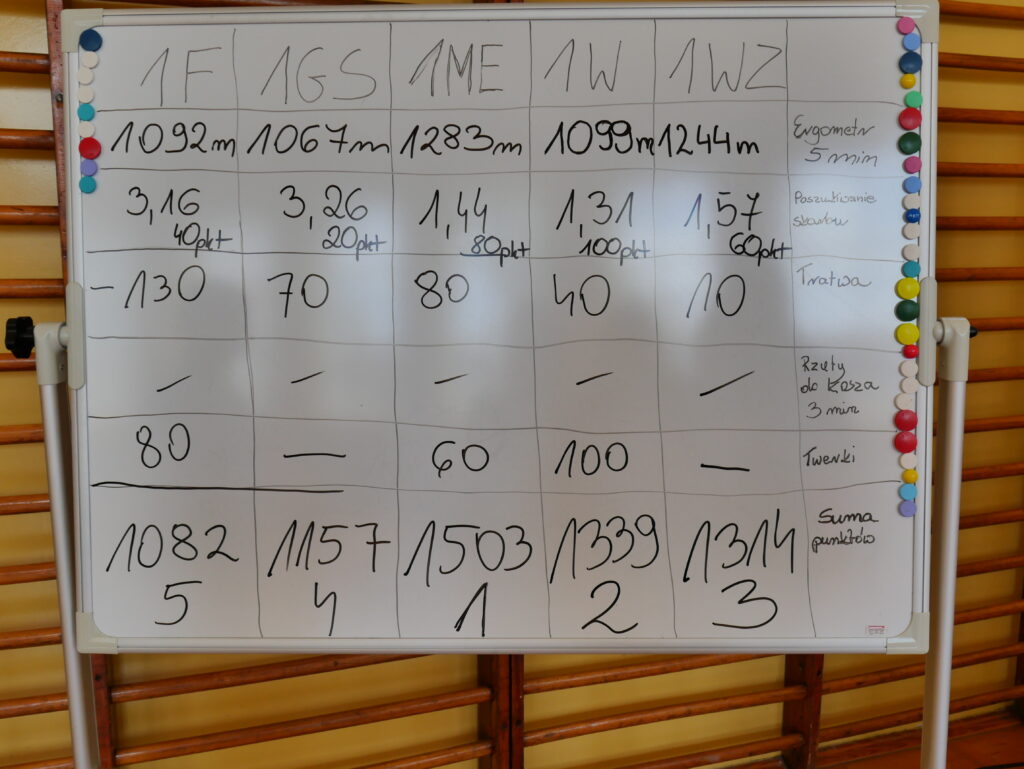 1F 1GS 1ME 1W 1WZ
1092m 1067m 1283m 1099m 1244m Ergometr
5 min
3,16 3,26 1,44 1,31 1,57 Poszukiwanie
40pkt 20pkt 80pkt 100pkt 60pkt skarbów
-130 70 80 40 10 Tratwa
— — — — — Rzuty
do kosza
3 min
80 — 60 100 — Twerki
1082 1157 1503 1339 1314 Suma
punktów
5 4 1 2 3